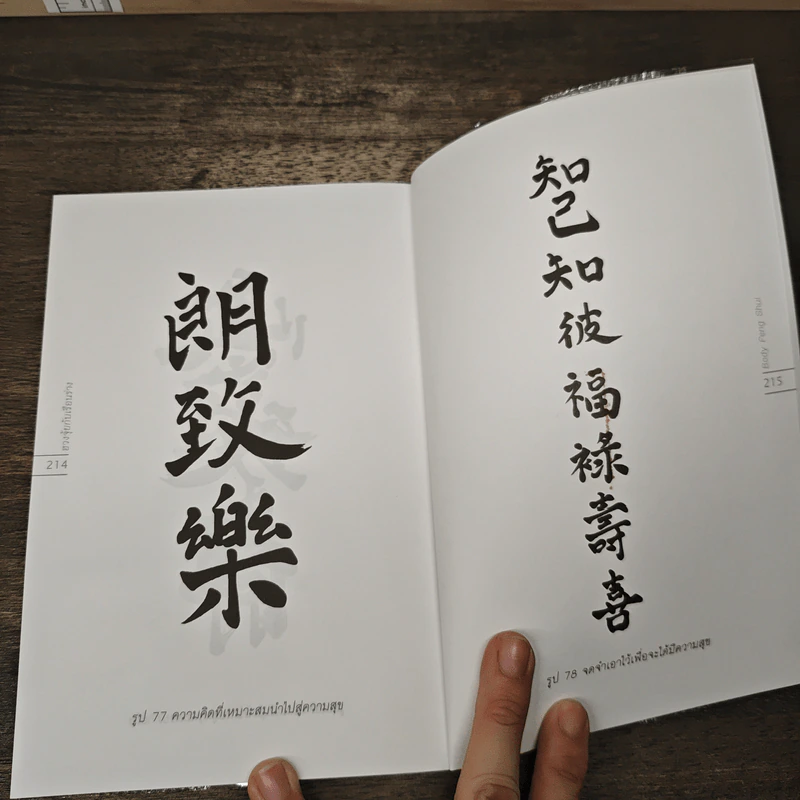 朗致樂
รูป 77 ความคิดที่เหมาะสมนำไปสู่ความสุข
214
ฮวงจุ้ยกับเรือนร่าง
知己知彼福祿壽喜
รูป 78 จดจำเอาไว้เพื่อจะได้มีความสุข
215
Body Feng Shui